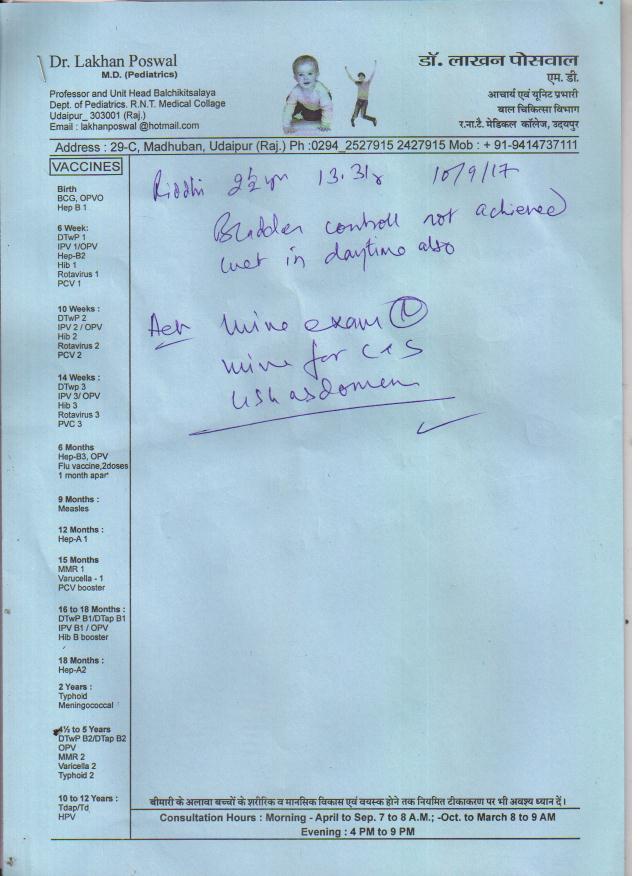 Dr. Lakhan Poswal
M.D. (Pediatrics)
Professor and Unit Head Balchikitsalaya
Dept. of Pediatrics. R.N.T. Medical Collage
Udaipur_ 303001 (Raj.)
Email : lakhanposwal @hotmail.com
डॉ. लाखन पोसवाल
एम. डी.
आचार्य एवं यूनिट प्रभारी
बाल चिकित्सा विभाग
र.ना.टै. मेडिकल कॉलेज, उदयपुर
Address : 29-C, Madhuban, Udaipur (Raj.) Ph :0294_2527915 2427915 Mob : + 91-9414737111
VACCINES
Birth
BCG, OPVO
Hep B 1
6 Week:
DTwP 1
IPV 1/OPV
Hep-B2
Hib 1
Rotavirus 1
PCV 1
10 Weeks :
DTwP 2
IPV 2 / OPV
Hib 2
Rotavirus 2
PCV 2
14 Weeks :
DTwp 3
IPV 3/ OPV
Hib 3
Rotavirus 3
PVC 3
6 Months
Hep-B3, OPV
Flu vaccine,2doses
1 month apar
9 Months :
Measles
12 Months :
Hep-A 1
15 Months
MMR 1
Varucella - 1
PCV booster
16 to 18 Months :
DTwP B1/DTap B1
IPV B1 / OPV
Hib B booster
18 Months :
Hep-A2
2 Years :
Typhoid
Meningococcal
4½ to 5 Years
DTwP B2/DTap B2
OPV
MMR 2
Varicella 2
Typhoid 2
10 to 12 Years :
Tdap/Td
HPV
Riddhi 2½ yr 13.3 10/9/17
Bladder controll not achieved
wet in daytime also
Adv urine exam (N)
urine for C & S
USG abdomen
बीमारी के अलावा बच्चों के शरीरिक व मानसिक विकास एवं वयस्क होने तक नियमित टीकाकरण पर भी अवश्य ध्यान दें।
Consultation Hours : Morning - April to Sep. 7 to 8 A.M.; -Oct. to March 8 to 9 AM
Evening : 4 PM to 9 PM